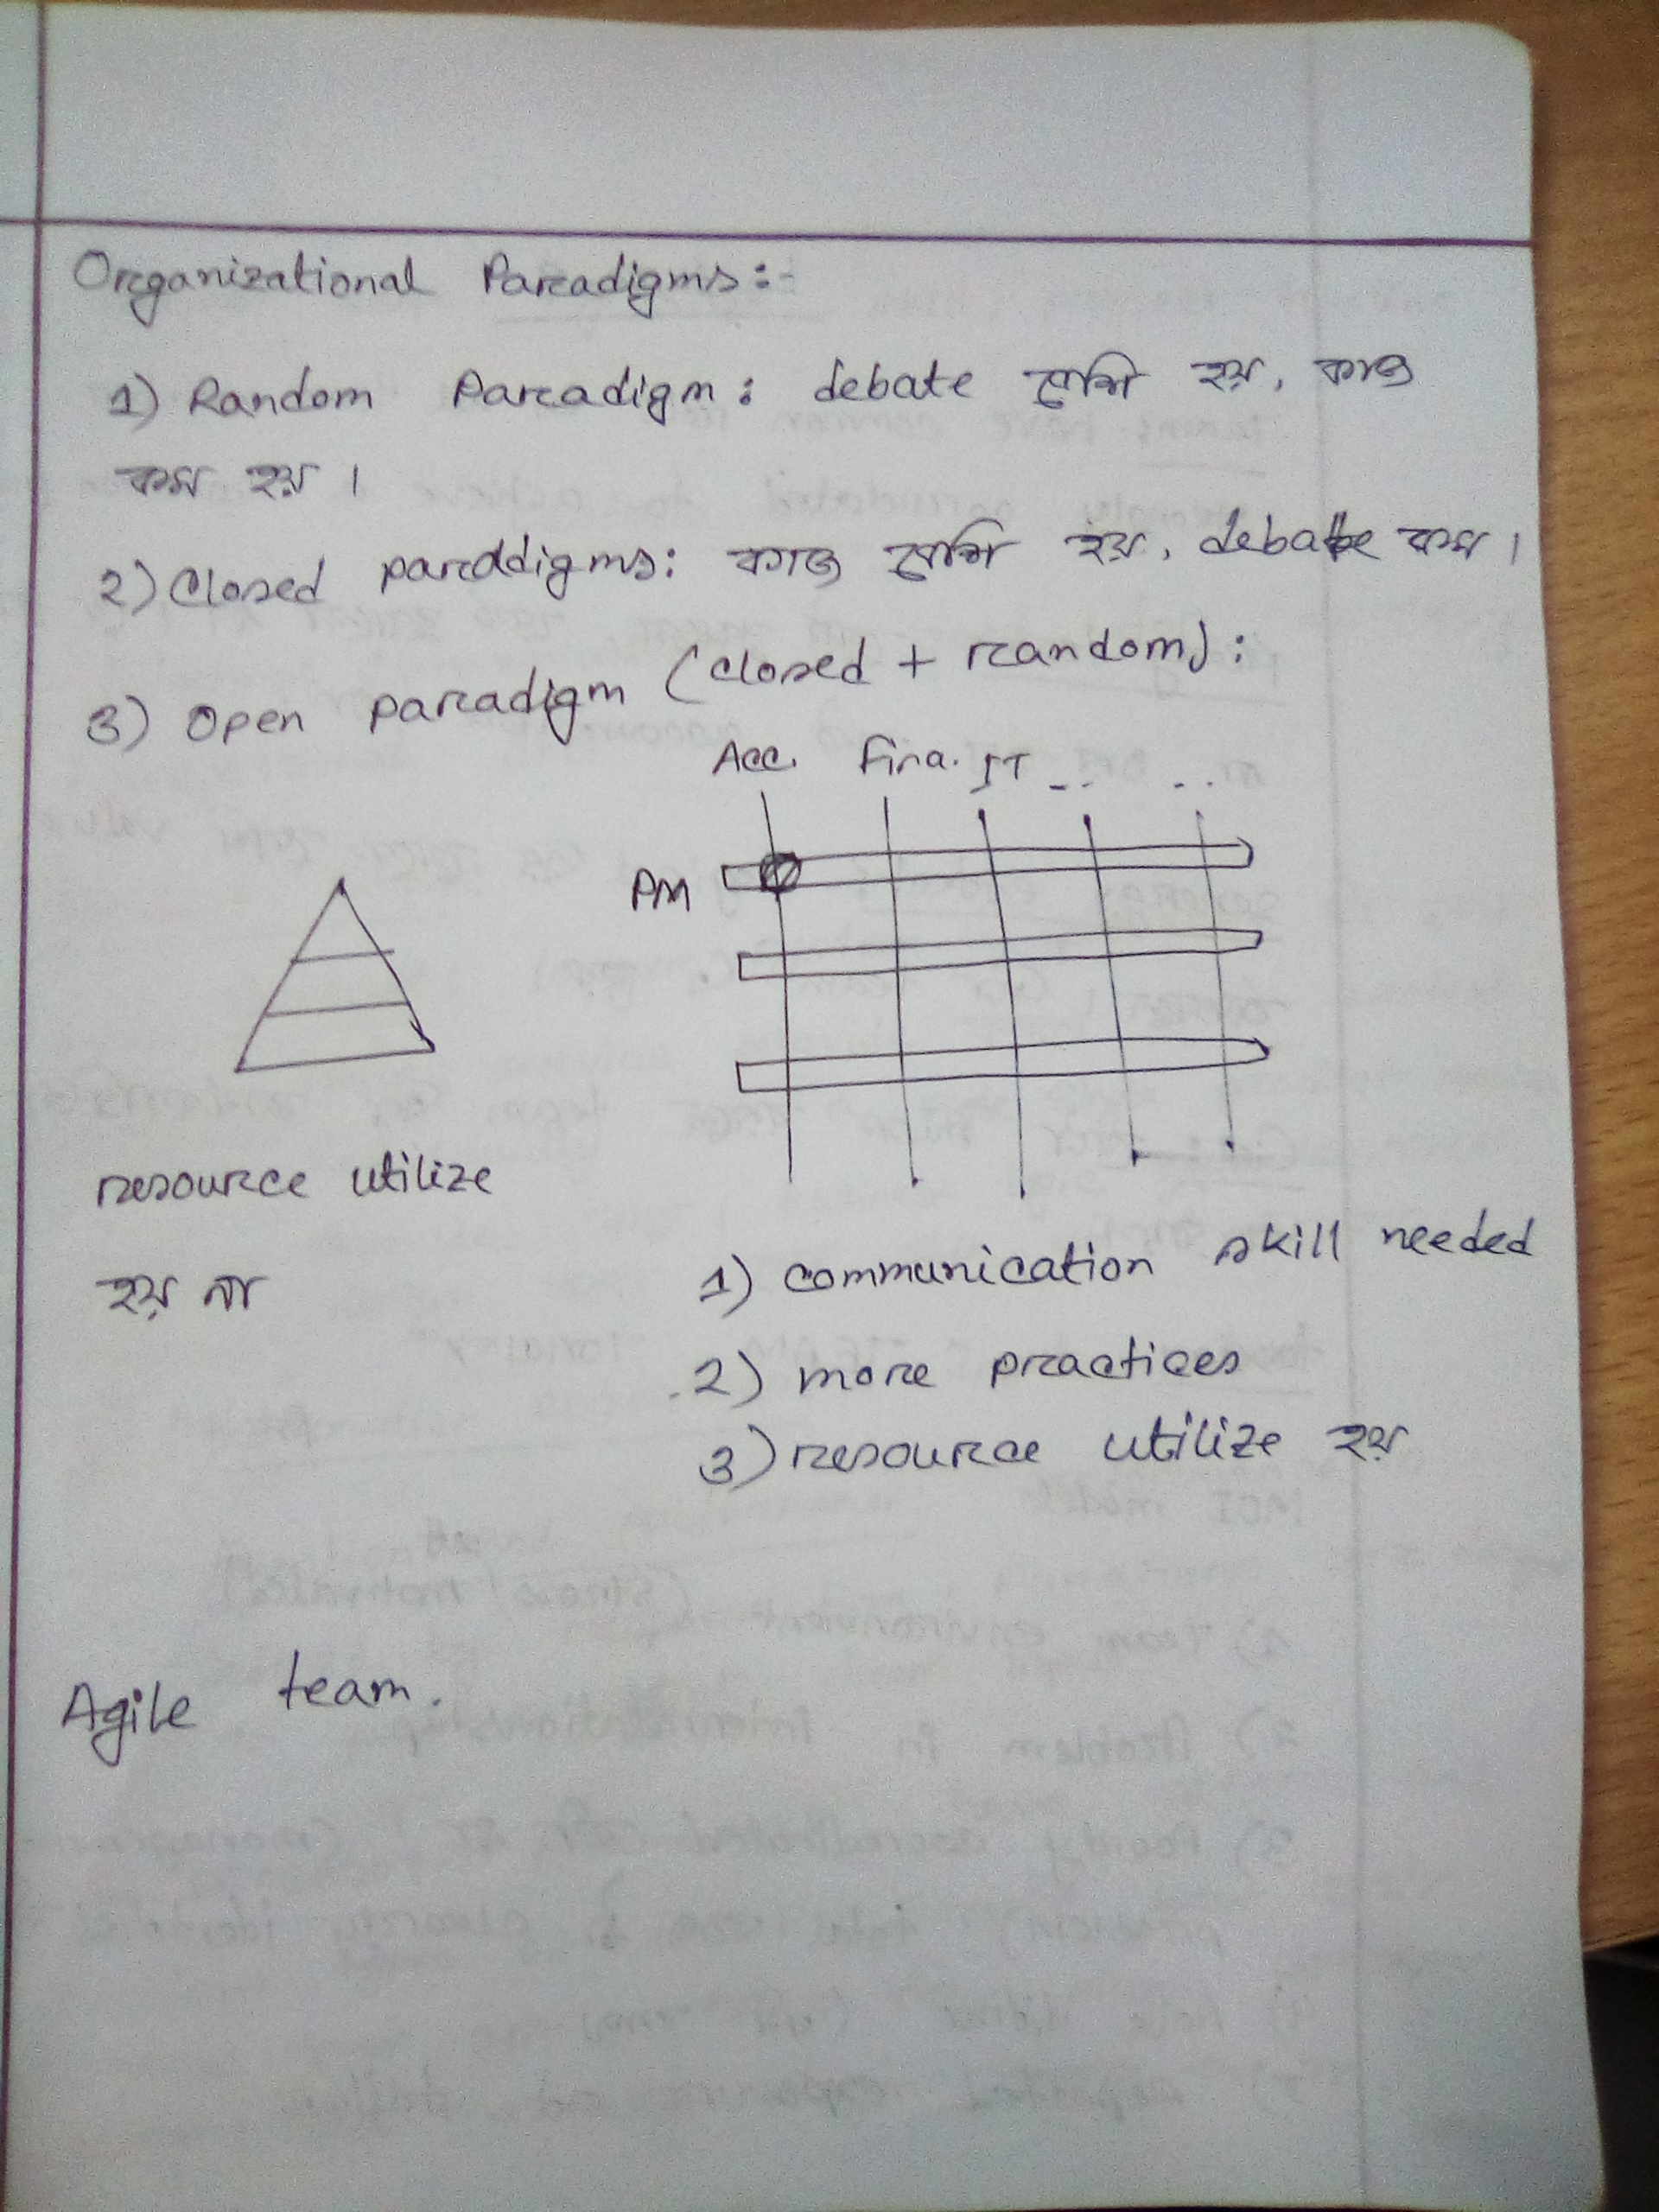 Organizational Paradigms:-
1) Random Paradigm: debate বেশি হয়, কাজ
কম হয়।
2) Closed paradigms: কাজ বেশি হয়, debate কম।
3) Open paradigm (closed + random):
Acc. Fina. IT -.. ...
PM
resource utilize
হয় না
1) communication skill needed
2) more practices
3) resource utilize হয়
Agile team.